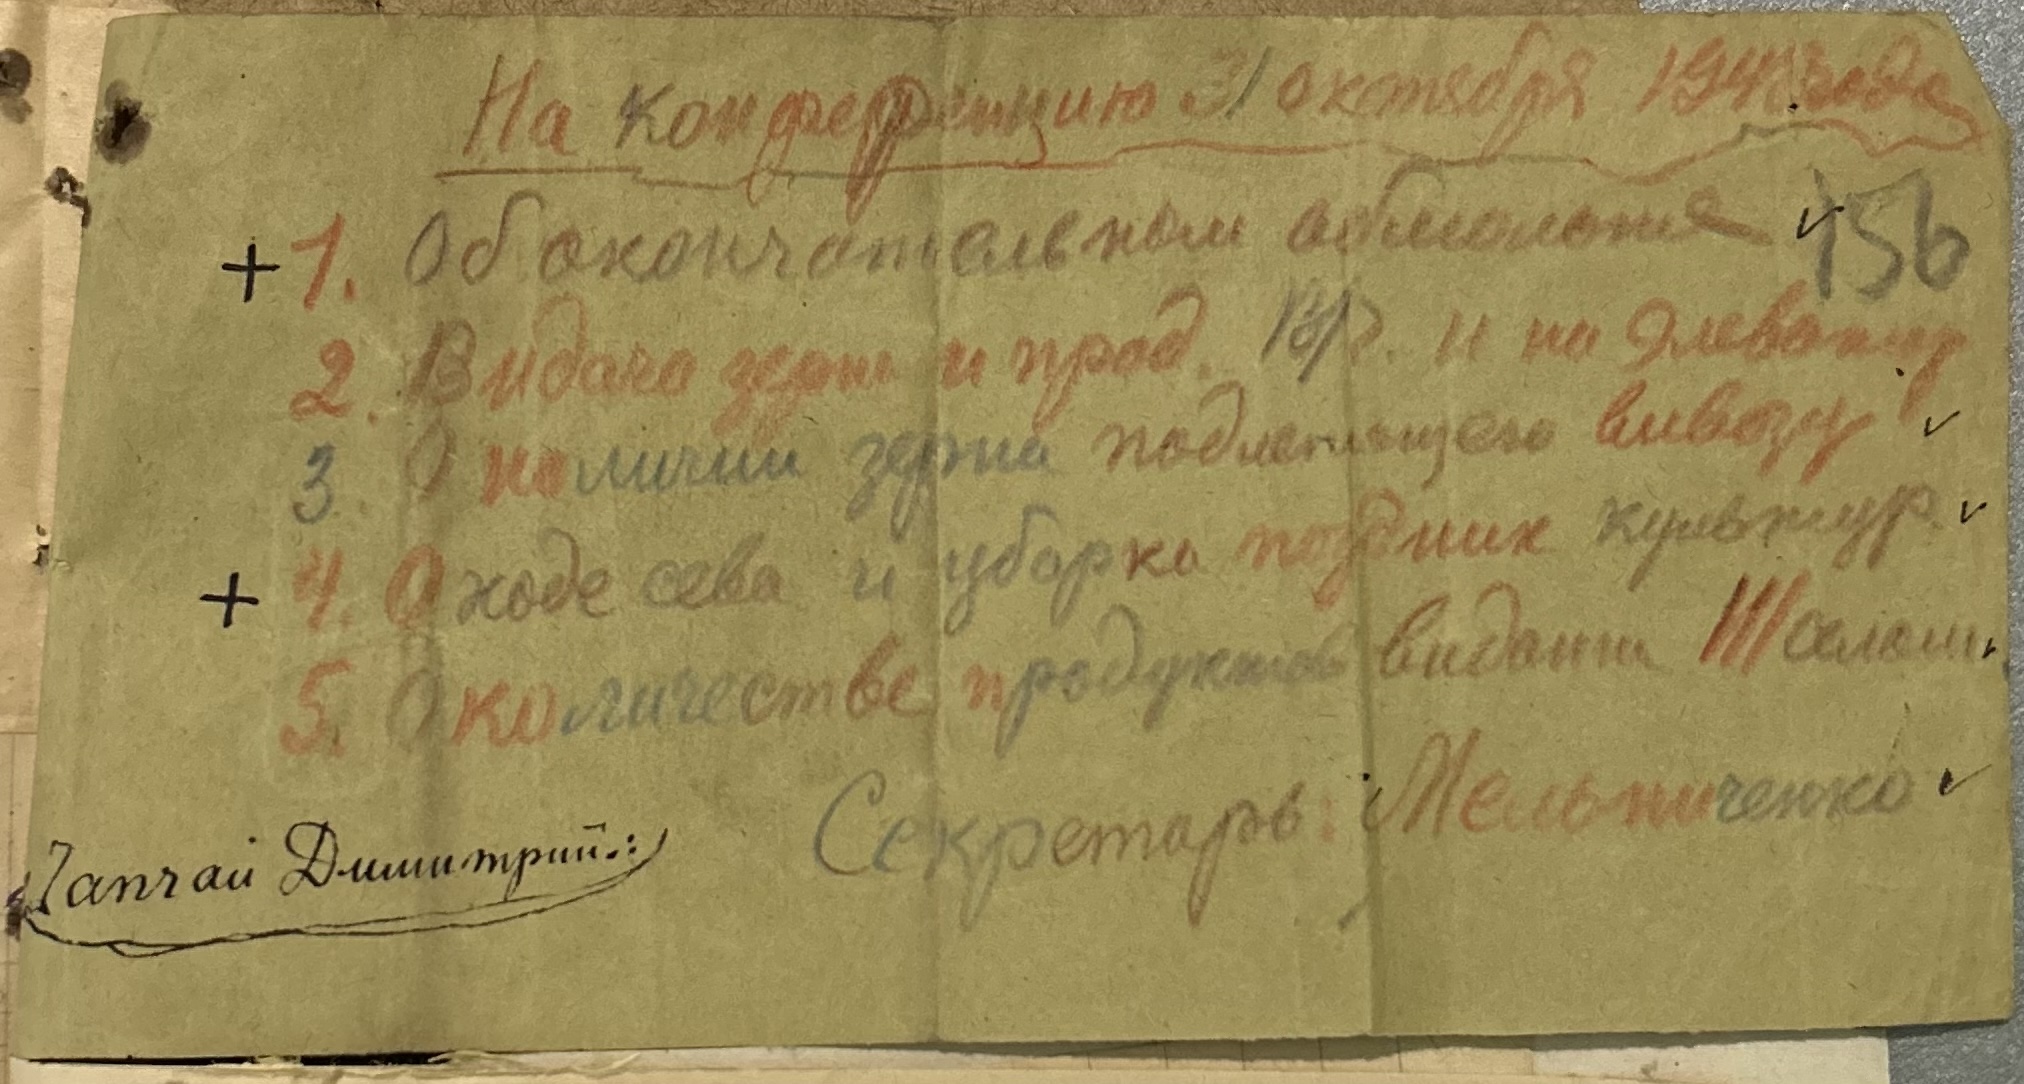 На конференцию 31 октября 194 года
156
+ 1. Об окончательном обмолоте
2. Видача зерн и прод. и на Элеватор
3. О наличии зерна подлежащего вивозу
+ 4. О ходе сева и уборка поздних культур.
5. О количестве продуктов видани селам
Секретарь: Мельниченко
Чапчай Димитрий